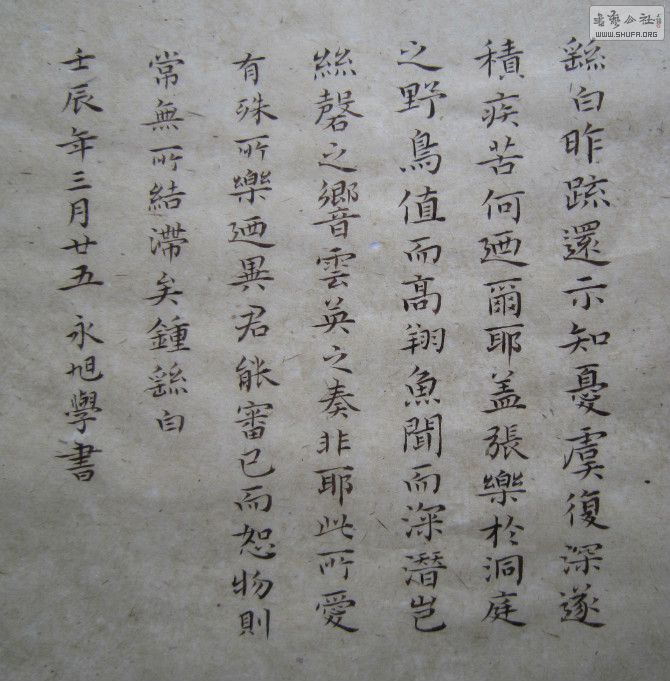 繇白昨疏還示知憂虞復深遂
積疾苦何迺爾耶蓋張樂於洞庭
之野鳥值而高翔魚聞而深潛豈
絲磬之響雲英之奏非耶此所愛
有殊所樂迺異君能審己而恕物則
常無所結滯矣鍾繇白
壬辰年三月廿五 永旭學書
書藝公社
WWW.SHUFA.ORG